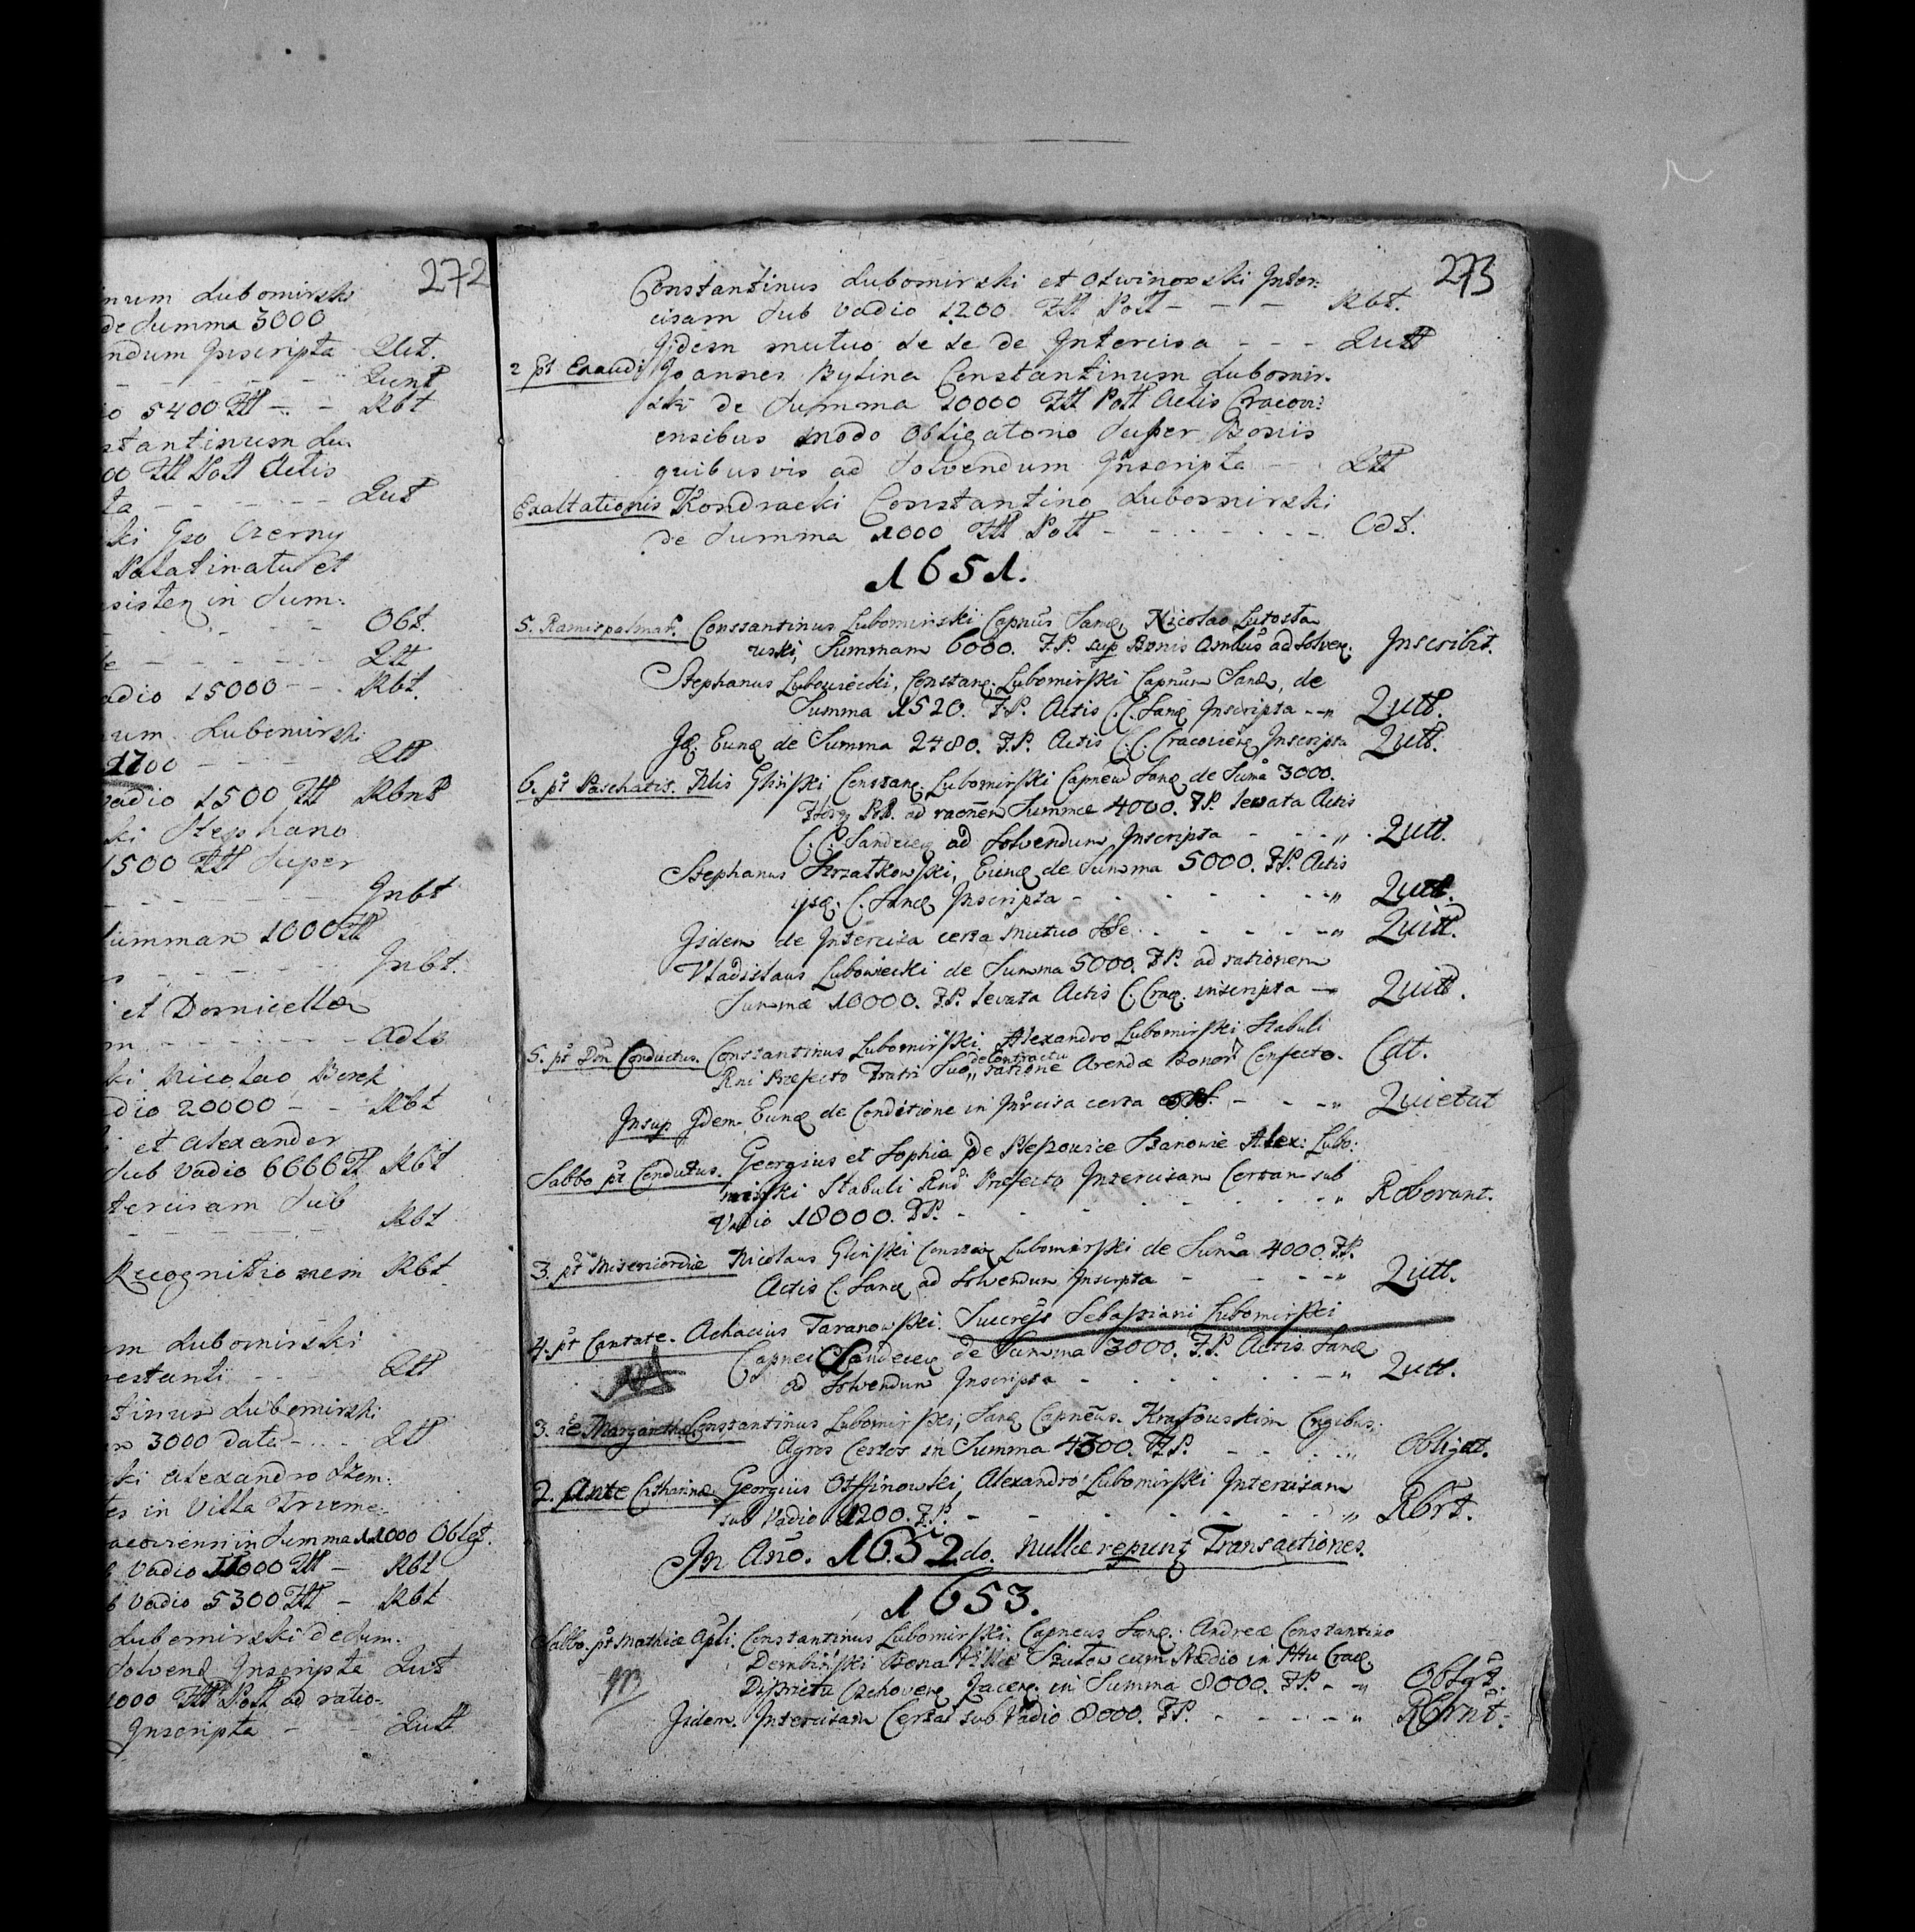 272
inum Lubomirski
de Summa 3000
ndum Inscripta Qut.
Qunt
io 5400 Ztt - Rbt
stantinum Lu
00 Ztt Pott Actis
ta - - - - Qut
ski Gso Czerny
Palatinatu et
sisten in Sum:
Obt.
de - - - - Qtt
adio 15000 - - Rbt.
num Lubomirski
1700 - - - Qtt
vadio 1500 Ztt Rbnt
ki Stephano
1500 Ztt Super
- - - - - Inbt
Summam 1000 Ztt
- - - - - Inbt.
et Domicella
m - - - - - adts
ki Nicolao Berek
dio 20000 - - Rbt
et Alexander
Sub Vadio 6666 Zt Rbt
tercisam Sub
- - - - Rbt
Recognitionem Rbt
m Lubomirski
restanti - - Qtt
tinus Lubomirski
m 3000 data - - Qtt
ski Alexandro
tes in Villa
in Summa 11000 Oblgt.
Vadio 11000 Ztt - Rbt
b Vadio 5300 Ztt - Rbt
Lubomirski de Sum.
Solvend Inscripta Qut
1000 Ztt Pott ad ratio-
Inscripta - - Qutt
273
Constantinus Lubomirski et Otwinowski Inter:
cisam Sub Vadio 1200 Ztt Pott - - - Rbt.
Idem mutuo se se de Intercisa - - - Qutt
2 pt Exaudi Joannes Bylina Constantinum Lubomir.
ski de Summa 10000 Ztt Pott Actis Cracovi:
ensibus modo Obligatorio Super Bonis
quibusvis ad Solvendum Inscripta - - Qtt
Exaltationis Kondracki Constantino Lubomirski
de Summa 1000 Ztt Pott - - - - - Cdt.
1651.
5. Ramispalmar. Constantinus Lubomirski Capnus Sanq. Nicolao Lutosta
wski, Summam 6000. F.P. sup Bonis Ombus ad Solven. Inscribit.
Stephanus Lubowiecki, Constanq. Lubomirski Capnum Sanq, de
Summa 1520. F.P. Actis C.C. Sanq Inscripta - - " Qutt.
Jd. Eunq de Summa 2480. F.P. Actis C.C. Cracovienq Inscripta Qutt.
6. pt Paschatis. Nlis Gliński Constanq. Lubomirski Capneu Sanq de Suma 3000.
Pol. ad raonem Summæ 4000. F.P. levata Actis
C.C. Sandeceq ad Solvendum Inscripta - - - " Qutt.
Stephanus Strzałkowski, Eunq de Summa 5000. F.P. Actis
ijsq. C. Sanq Inscripta - - - - - - " Qutt.
Jidem de Intercisa certa mutuo Sese - - - - " Quitt.
Vladislaus Lubowiecki de Summa 5000. F.P. ad rationem
Summæ 10000. F.P. levata Actis C. Craq. inscripta - Quitt.
5. pt Dom Conductus. Constantinus Lubomirski Alexandro Lubomirski Stabuli
Rni Præfecto Fratri Suo " de Contractu ratione Arendæ Bonor Confecto. Cdt.
Insup Jdem. Eunq de Conditione in Intrcisa certa - - - " Quietat
Sabbo pt Condutus. Georgius et Sophia De Pleszowice Banowie Alex: Lubo:
mirski Stabuli Rni Præfecto Intercisam Certam sub
Vadio 18000. F.P. - - - - - - " Roborant.
3. pt Misericordiæ Nicolaus Gliński Constanq Lubomirski de Suma 4000. F.P.
Actis C. Sanq ad Solvendum Inscripta - - - " Qutt.
4. pt Cantate. Achacius Taranowski. Succress Sebastiani Lubomirski
Capnei Sandeceq de Summa 3000. F.P. Actis Sanq
ad Solvendum Inscripta - - - - - " Qutt.
3. ae Margarithæ Constantinus Lubomirski, Sanq Capneus. Krassouskim Cngibus.
Agros Certos in Summa 4300. F.P. - - - " Obligat.
2. Ante Catharinæ Georgius Otffinowski, Alexandro Lubomirski Intercisam
sub Vadio 1200. F.P. - - - - - - " Rbrt.
In Ano. 1652do. Nullæ repunt Transactiones.
1653.
Sabbo. pt Mathiæ Apli. Constantinus Lubomirski. Capneus Sanq. Andreæ Constantino
NB Dembiński Bona Villæ cum Prædio in Pttu Craq.
Districtu Czchoveq Jaceq. in Summa 8000. F.P. - " Oblgt.
Jidem. Intercisam Certam sub Vadio 8000. F.P. - - - - " RBrnt.